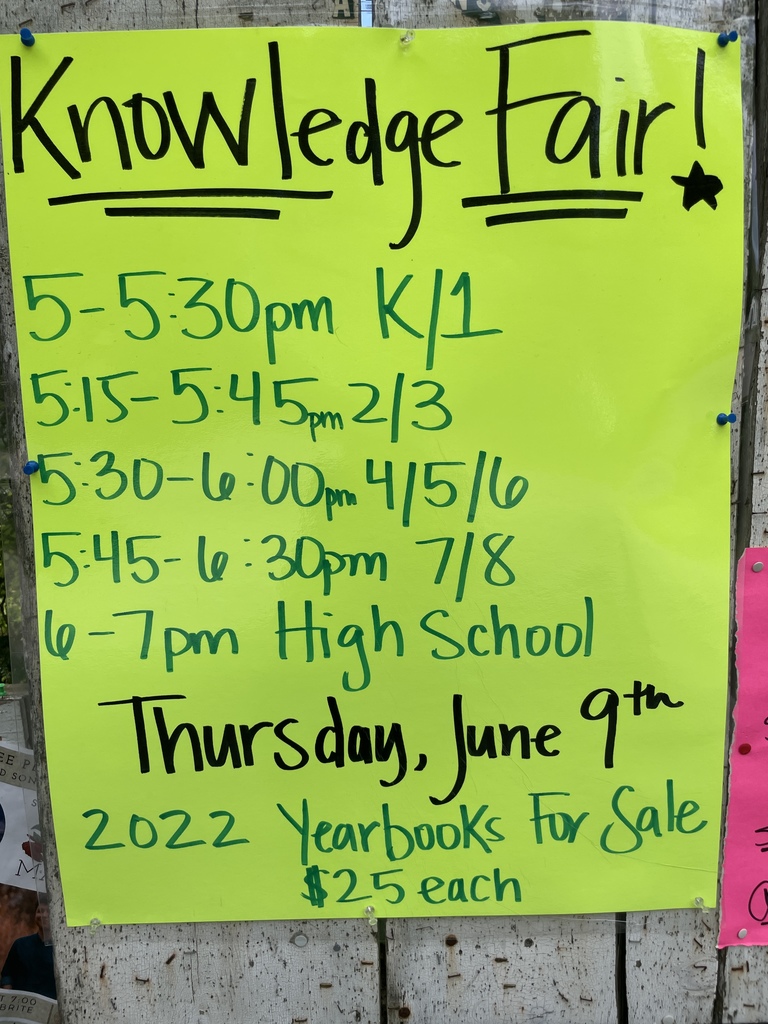 Knowledge Fair!
5-5:30pm K/1
5:15-5:45pm 2/3
5:30-6:00pm 4/5/6
5:45-6:30pm 7/8
6-7pm High School
Thursday, June 9th
2022 Yearbooks For Sale
$25 each